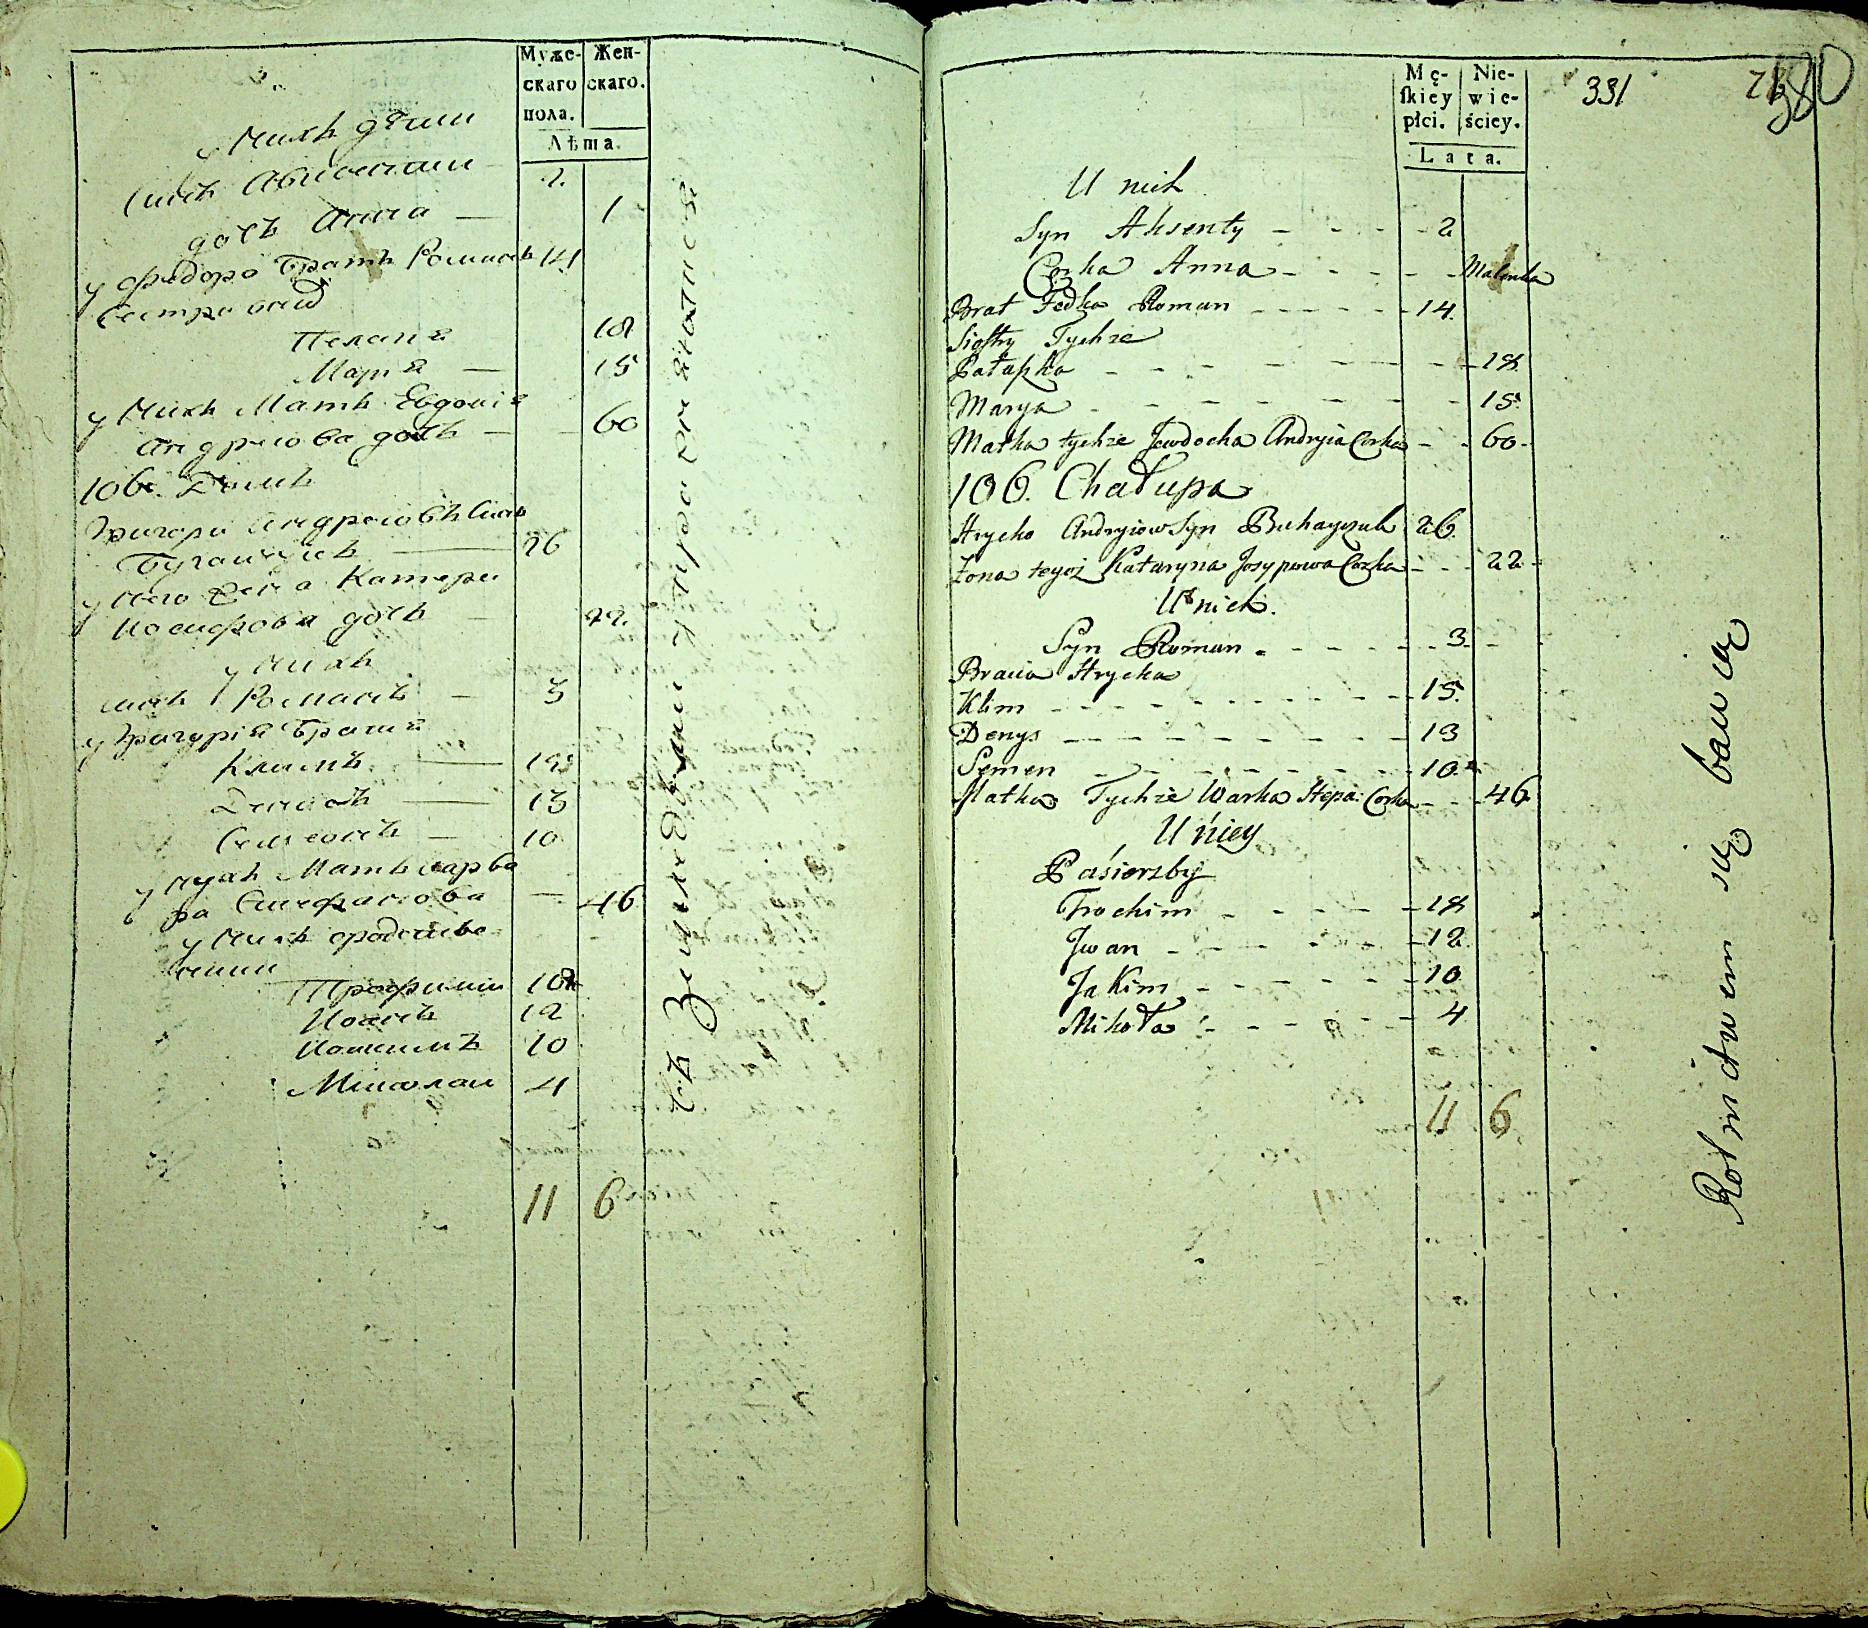 Муже-
скаго
пола.
Жен-
скаго.
Лѣта.
у нихъ дѣти
Сынъ Авксентии 2.
дочь Анна — 1
у Федора братъ Романъ 14
Сестры
Пелагия 18
Мария — 15
у нихъ Мать Евдокия
Андреева дочь — 60
106. Домъ
Григори Андреевъ Сынъ
— 26
у него жена Катери
Иосифова дочь — 22.
у нихъ
Сынъ Романъ — 3
у Григория братия
Климъ — 15
Денисъ — 13
Семенъ — 10
у нихъ Мать Варва
ра Стефанова — 46
у нихъ
Трофимъ 18
Иванъ 12
10
Николаи 4
11 6
съ Земледелии и промысла питаются
Mę-
skiey
płci.
Nie-
wie-
ściey.
Lata.
331
U nich
Syn Aksenty - - - - 2
Corka Anna - - - - Malenka
Brat Fedka Roman - - - - - 14.
Siostry Tychże
Pałaszka - - - - - - - 18
Marya - - - - - - - 15.
Matka tychże Jewdocha Andryia Corka - - 60 -
106. Chałupa
Hrycko Andryiow Syn 26.
Żona tegoż Kataryna Josypowa Corka - - - 22 -
U nich.
Syn Roman - - - - - - 3. -
Bracia Hrycka
Klim - - - - - - - - 15.
Denys - - - - - - - - 13
Semen - - - - - - - - 10.
Matka Tychże Warka Stepa: Corka - - - 46
U niey
Pasierzby
Trochim - - - - - 18
Jwan - - - - - 12
Jakim - - - - - - 10
Mikoła - - - - - - 4
11 6
Rolnictwem się bawią